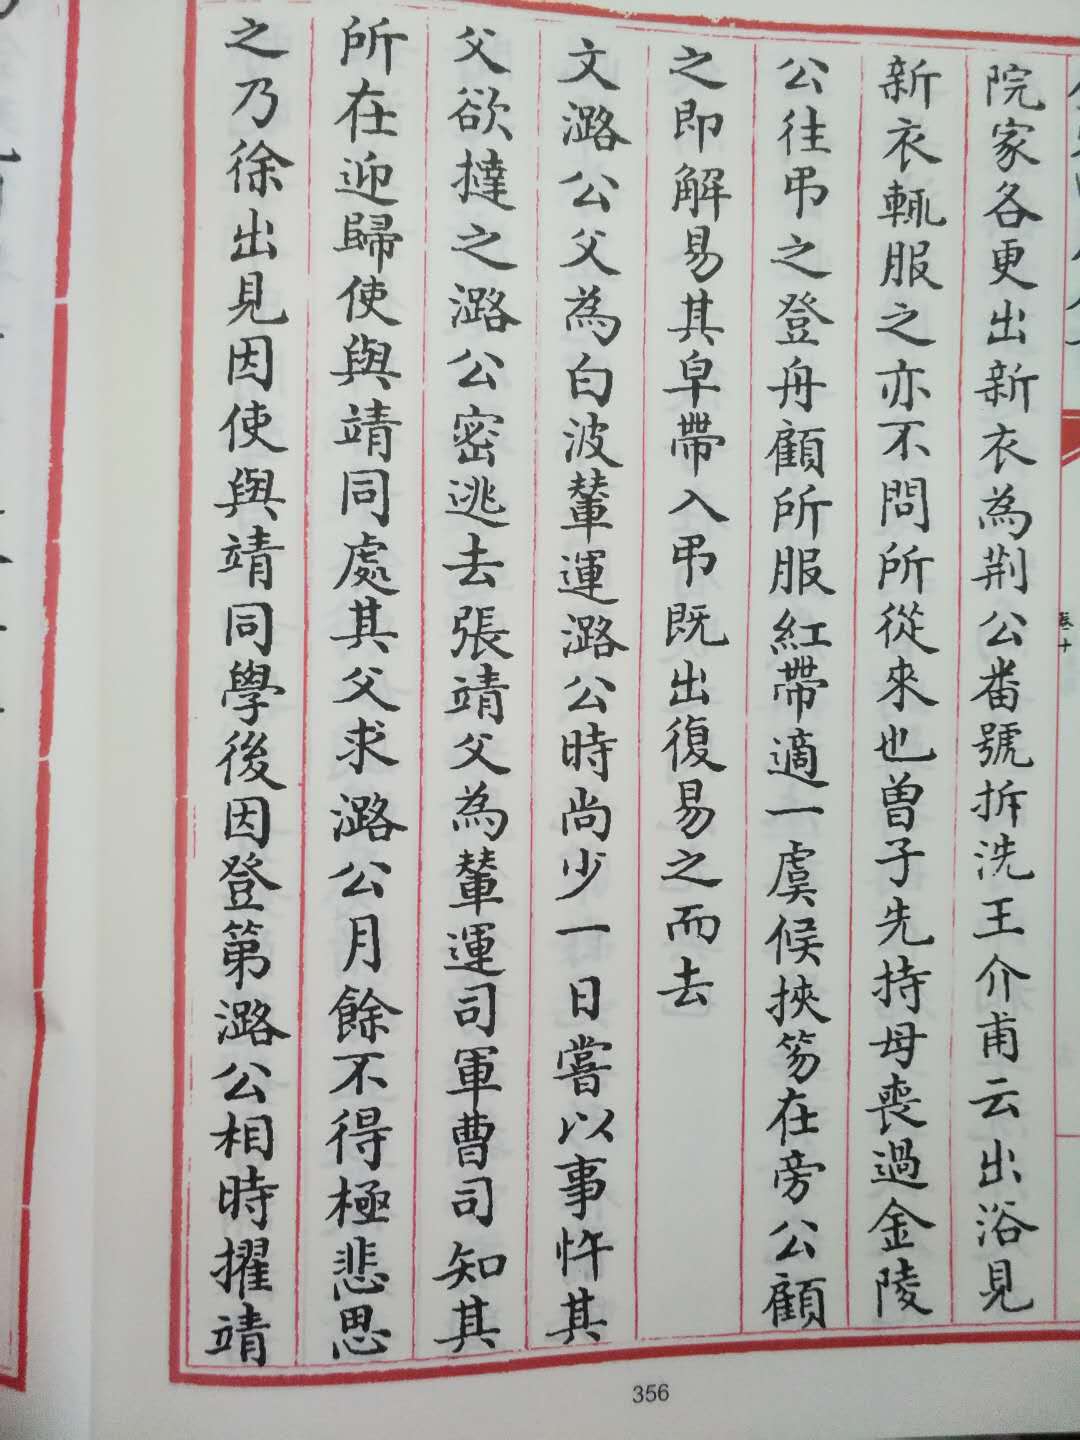 院家各更出新衣為荆公番號拆洗王介甫云出浴見
新衣輒服之亦不問所從來也曾子先持母喪過金陵
公往弔之登舟顧所服紅帶適一虞候挾笏在旁公顧
之即解易其皁帶入弔既出復易之而去
文潞公父為白波輦運潞公時尚少一日嘗以事忤其
父欲撻之潞公密逃去張靖父為輦運司軍曹司知其
所在迎歸使與靖同處其父求潞公月餘不得極悲思
之乃徐出見因使與靖同學後因登第潞公相時擢靖
卷十
356